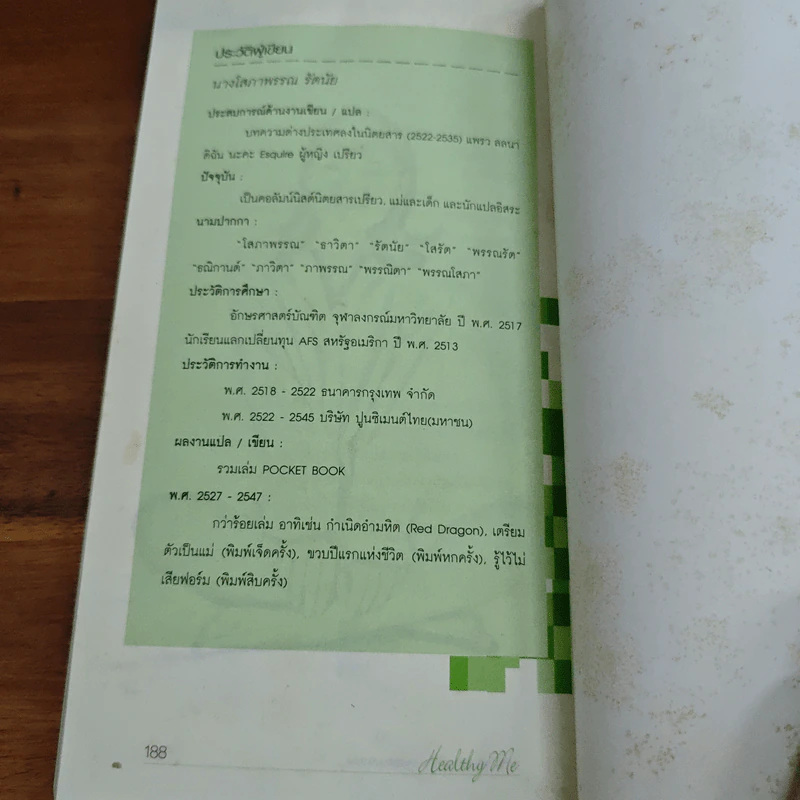 ประวัติผู้เขียน
นางโสภาพรรณ รัตนัย
ประสบการณ์ด้านงานเขียน / แปล :
บทความต่างประเทศลงในนิตยสาร (2522-2535) แพรว ลลนา
ดิฉัน นะคะ Esquire ผู้หญิง เปรียว
ปัจจุบัน :
เป็นคอลัมน์นิสต์นิตยสารเปรียว, แม่และเด็ก และนักแปลอิสระ
นามปากกา :
"โสภาพรรณ" "ธาวิตา" "รัตนัย" "ใสรัต" "พรรณรัต"
"ธณิกานต์" "ภาวิตา" "ภาพรรณ" "พรรณิตา" "พรรณโสภา"
ประวัติการศึกษา :
อักษรศาสตร์บัณฑิต จุฬาลงกรณ์มหาวิทยาลัย ปี พ.ศ. 2517
นักเรียนแลกเปลี่ยนทุน AFS สหรัฐอเมริกา ปี พ.ศ. 2513
ประวัติการทำงาน :
พ.ศ. 2518 - 2522 ธนาคารกรุงเทพ จำกัด
พ.ศ. 2522 - 2545 บริษัท ปูนซิเมนต์ไทย(มหาชน)
ผลงานแปล / เขียน :
รวมเล่ม POCKET BOOK
พ.ศ. 2527 - 2547 :
กว่าร้อยเล่ม อาทิเช่น กำเนิดอำมหิต (Red Dragon), เตรียม
ตัวเป็นแม่ (พิมพ์เจ็ดครั้ง), ขวบปีแรกแห่งชีวิต (พิมพ์หกครั้ง), รู้ไว้ไม่
เสียฟอร์ม (พิมพ์สิบครั้ง)
188
Healthy Me